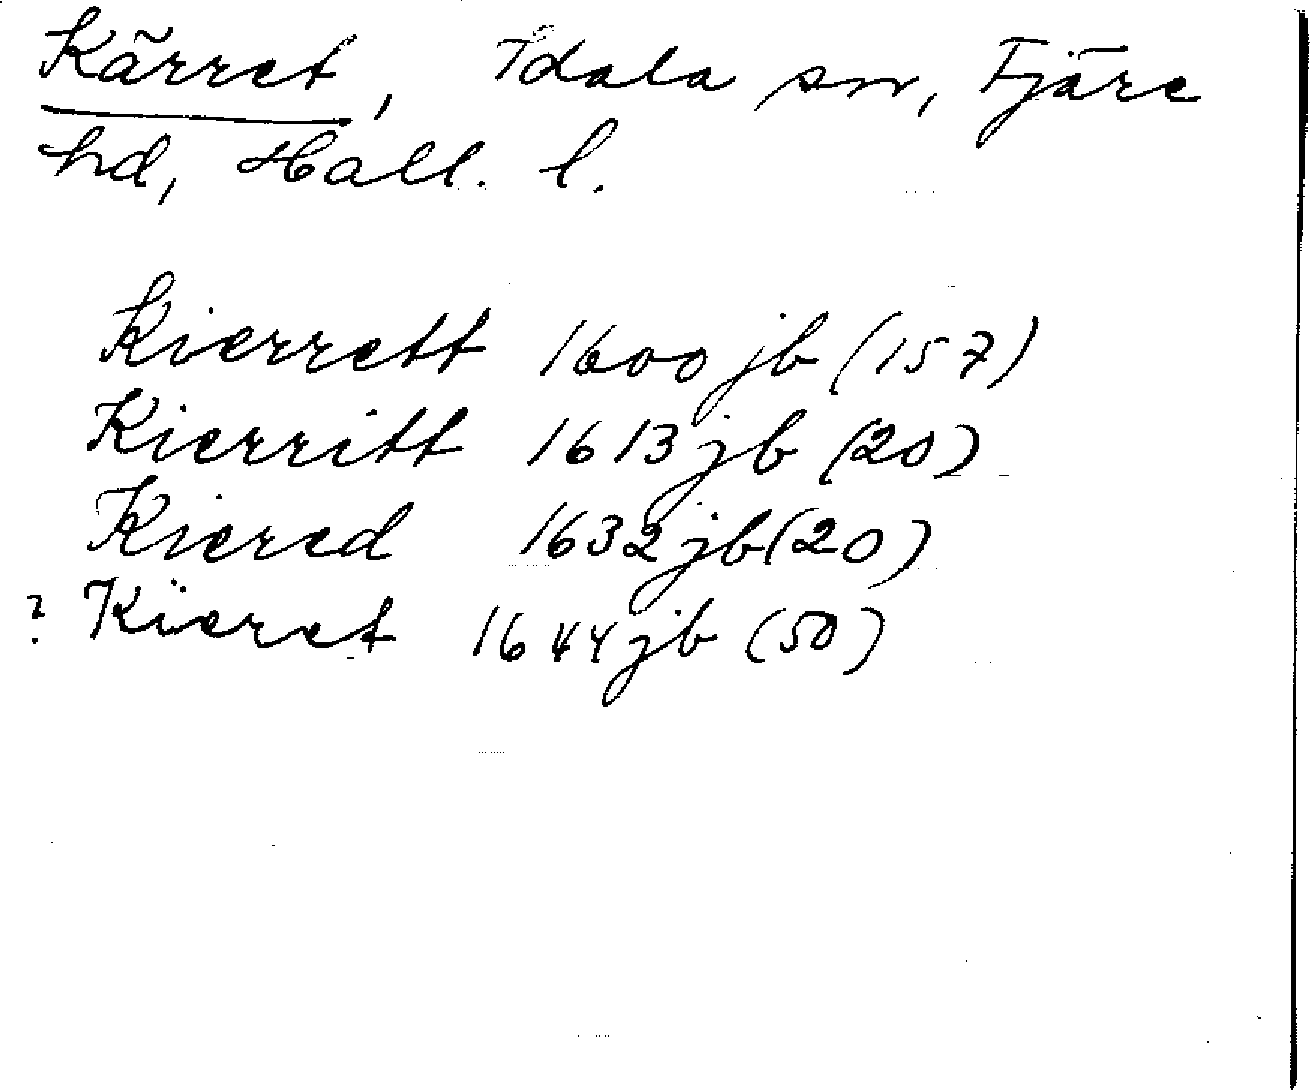 Kärret, Idala sn, Fjäre
hd, Hall. l.
Kierrett 1600 jb (157)
Kierritt 1613 jb (20)
Kiered 1632 jb (20)
? Kïeret 1644 jb (50)